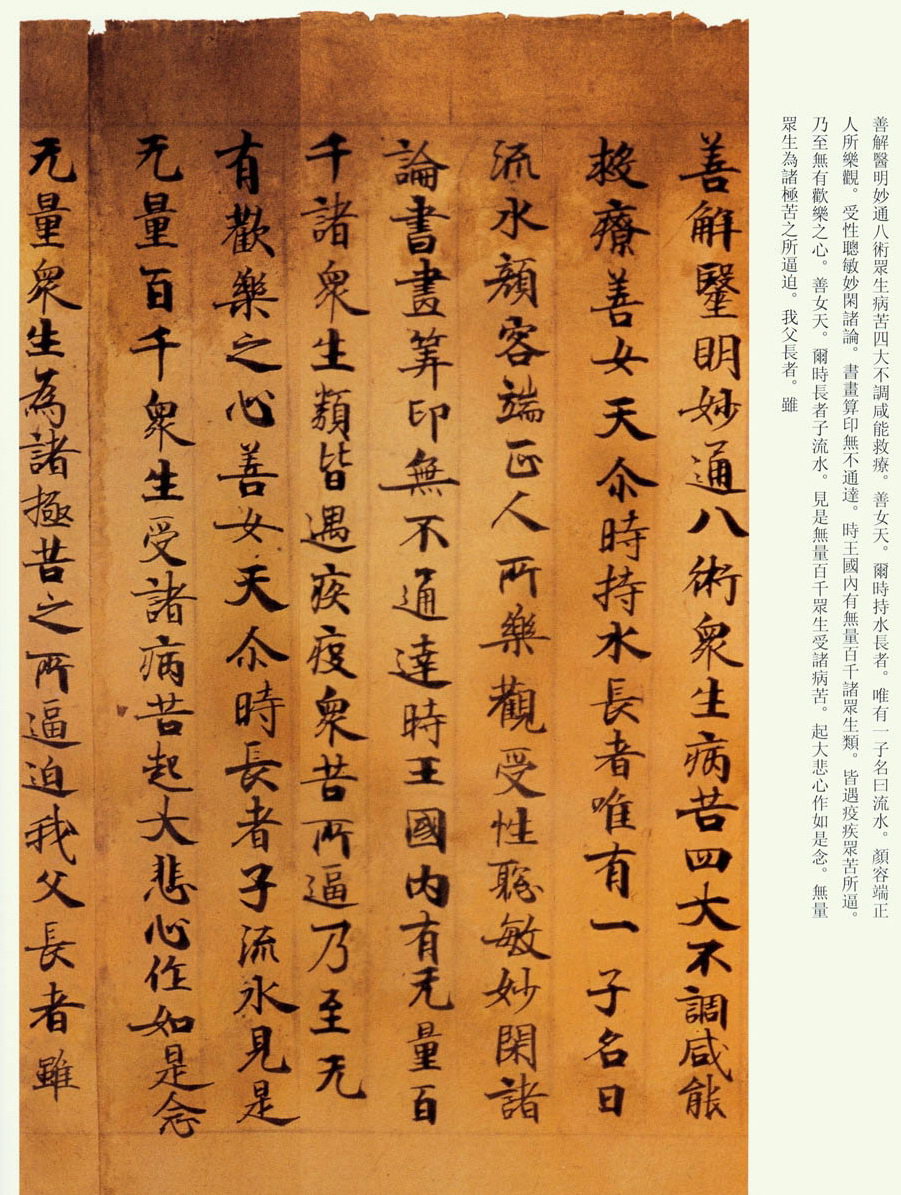 善解醫明妙通八術眾生病苦四大不調咸能救療。善女天。爾時持水長者。唯有一子名曰流水。顏容端正
人所樂觀。受性聰敏妙閑諸論。書畫算印無不通達。時王國內有無量百千諸眾生類。皆遇疫疾眾苦所逼。
乃至無有歡樂之心。善女天。爾時長者子流水。見是無量百千眾生受諸病苦。起大悲心作如是念。無量
眾生為諸極苦之所逼迫。我父長者。雖
善解毉明妙通八術衆生病苦四大不調咸能
救療善女天尒時持水長者唯有一子名曰
流水顏容端正人所樂觀受性聡敏妙閑諸
論書畫筭印無不通達時王國內有无量百
千諸衆生類皆遇疾疫衆苦所逼乃至无
有歡樂之心善女天尒時長者子流水見是
无量百千衆生受諸病苦起大悲心作如是念
无量衆生為諸極苦之所逼迫我父長者雖